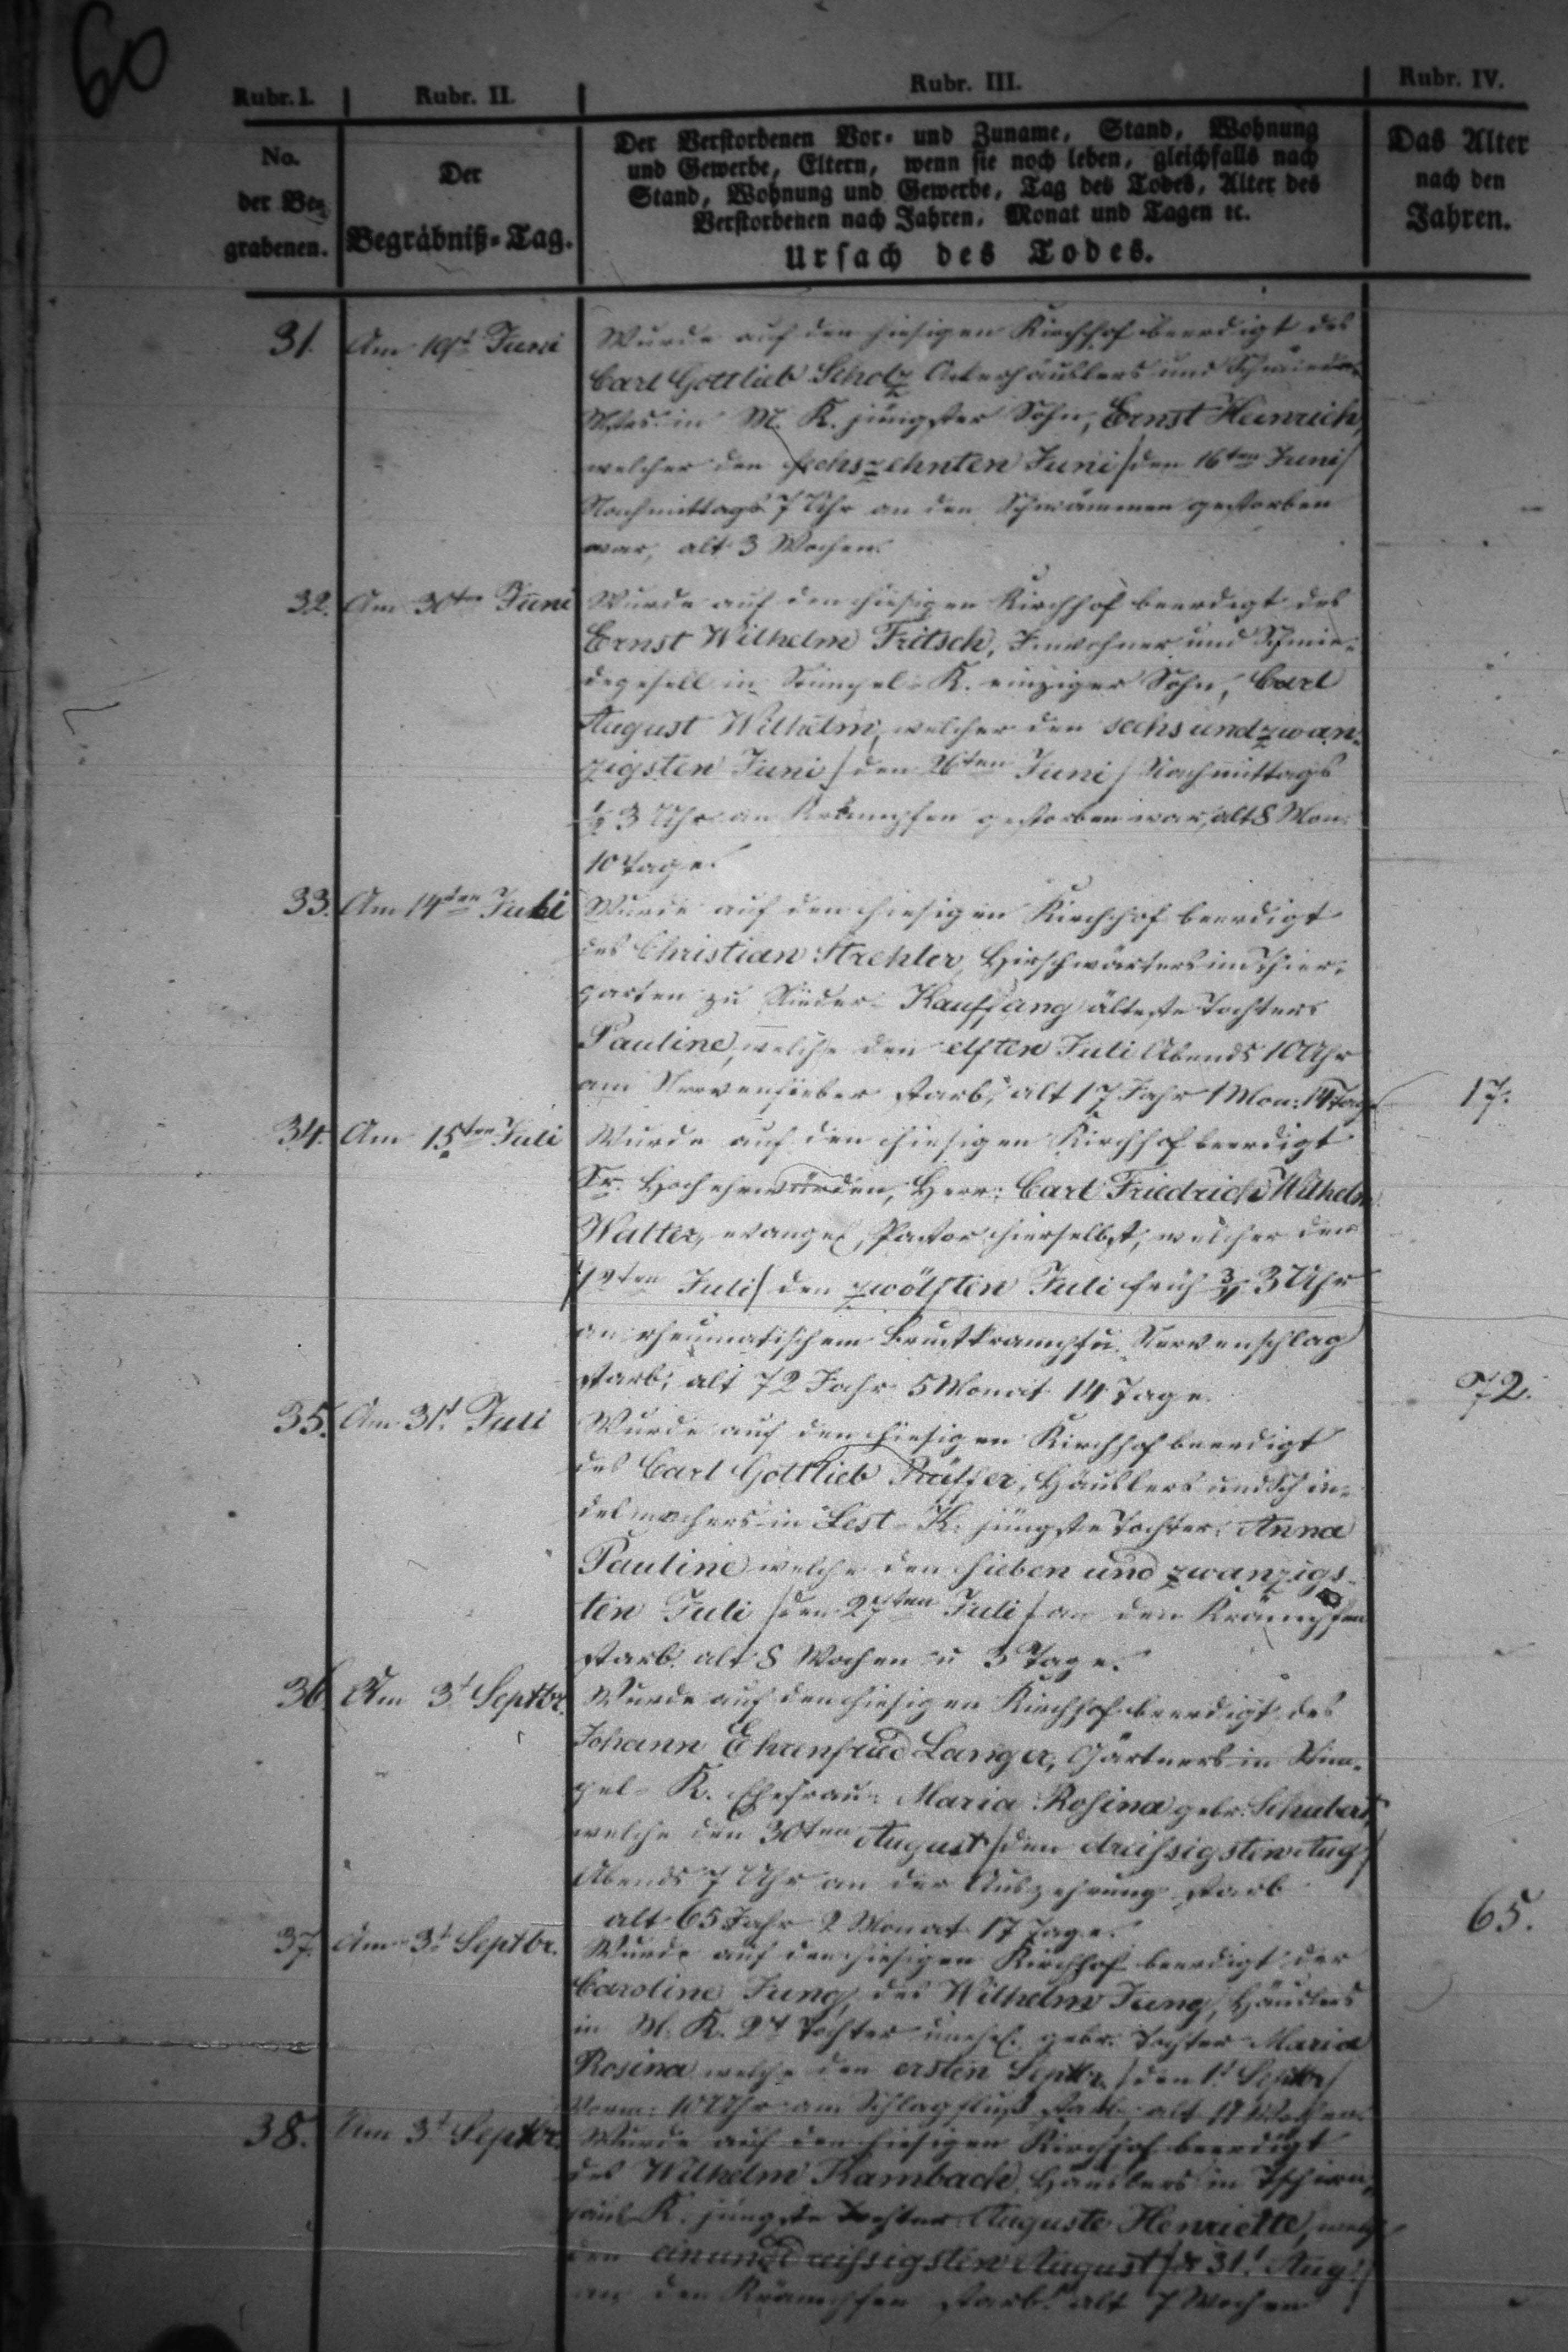 60
Rubr. I. Rubr. II. Rubr. III. Rubr. IV.
No.
der Be-
grabenen.
Der
Begräbniß-Tag.
Der Verstorbenen Vor- und Zuname, Stand, Wohnung
und Gewerbe, Eltern, wenn sie noch leben, gleichfalls nach
Stand, Wohnung und Gewerbe, Tag des Todes, Alter des
Verstorbenen nach Jahren, Monat und Tagen ꝛc.
Ursach des Todes.
Das Alter
nach den
Jahren.
31. Am 19t Juni Wurde auf den hiesigen Kirchhof beerdigt des
Carl Gottlieb Scholz Ackerhäuslers und Schmiede-
Mstrs. in M. K. jüngster Sohn, Ernst Heinrich,
welcher den sechszehnten Juni /den 16ten Juni/
Nachmittags 7 Uhr an den Schwämmen gestorben
war, alt 3 Wochen.
32. Am 30ten Juni Wurde auf den hiesigen Kirchhof beerdigt des
Ernst Wilhelm Fritsch, Inwohner und Schmie-
degesell in Stimpel-K. einziger Sohn, Carl
August Wilhelm, welcher den sechsundzwan-
zigsten Juni /den 26ten Juni/ Nachmittags
½ 3 Uhr an Krämpfen gestorben war, alt 8 Mon.
10 Tage.
33. Am 14ten Juli Wurde auf den hiesigen Kirchhof beerdigt
des Christian Strehler, Hirschwärters im Thier-
garten zu Nieder-Kauffung älteste Tochter
Pauline, welche den elften Juli Abends 10 Uhr
am Nervenfieber starb, alt 17 Jahr 1 Mon. 14 Tage 17.
34. Am 15ten Juli Wurde auf den hiesigen Kirchhof beerdigt
Sr. Hochehrwürden, Herr: Carl Friedrich Wilhelm
Walter, evangel. Pastor hierselbst, welcher den
/12ten Juli/ den zwölften Juli früh ¾ 3 Uhr
an rheumatischem Brustkrampf u. Nervenschlag
starb; alt 72 Jahr 5 Monat 14 Tage. 72.
35. Am 31t. Juli Wurde auf den hiesigen Kirchhof beerdigt
des Carl Gottlieb Rüffer, Häuslers und Schin-
delmachers in Lest-K. jüngste Tochter: Anna
Pauline welche den sieben und zwanzigs-
ten Juli /den 27ten Juli/ an den Krämpfen
starb. alt 8 Wochen u 3 Tage.
36. Am 3t Septbr. Wurde auf den hiesigen Kirchhof beerdigt des
Johann Ehrenfried Langer, Gärtners in Stim-
pel-K. Ehefrau: Maria Rosina gebr. Schubert,
welche den 30ten August /den dreissigsten Aug/
Abends 7 Uhr an der Auszehrung starb
alt 65 Jahr 2 Monat 17 Tage. 65.
37. Am 3t Septbr. Wurde auf den hiesigen Kirchhof beerdigt der
Caroline Jung, des Wilhelm Jung, Häuslers
in M. K. 2t Tochter unehel. gebr. Tochter Maria
Rosina welche den ersten Septbr. /den 1t Septbr/
Vorm: 10 Uhr am Schlagfluß starb, alt 17 Wochen.
38. Am 3t Septbr. Wurde auf den hiesigen Kirchhof beerdigt
des Wilhelm Kambach, Häuslers in Tschirn-
haus-K. jüngste Tochter Auguste Henriette, welche
den einunddreissigsten August /d 31t. Aug./
an den Krämpfen starb. alt 7 Wochen